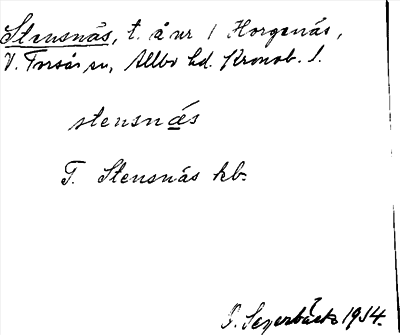 Stensnäs, t. å nr 1 Horgenäs,
V. Torsås sn, Allbo hd. Kronob. l.
stensnäs
T. Stensnäs hb.
1914.